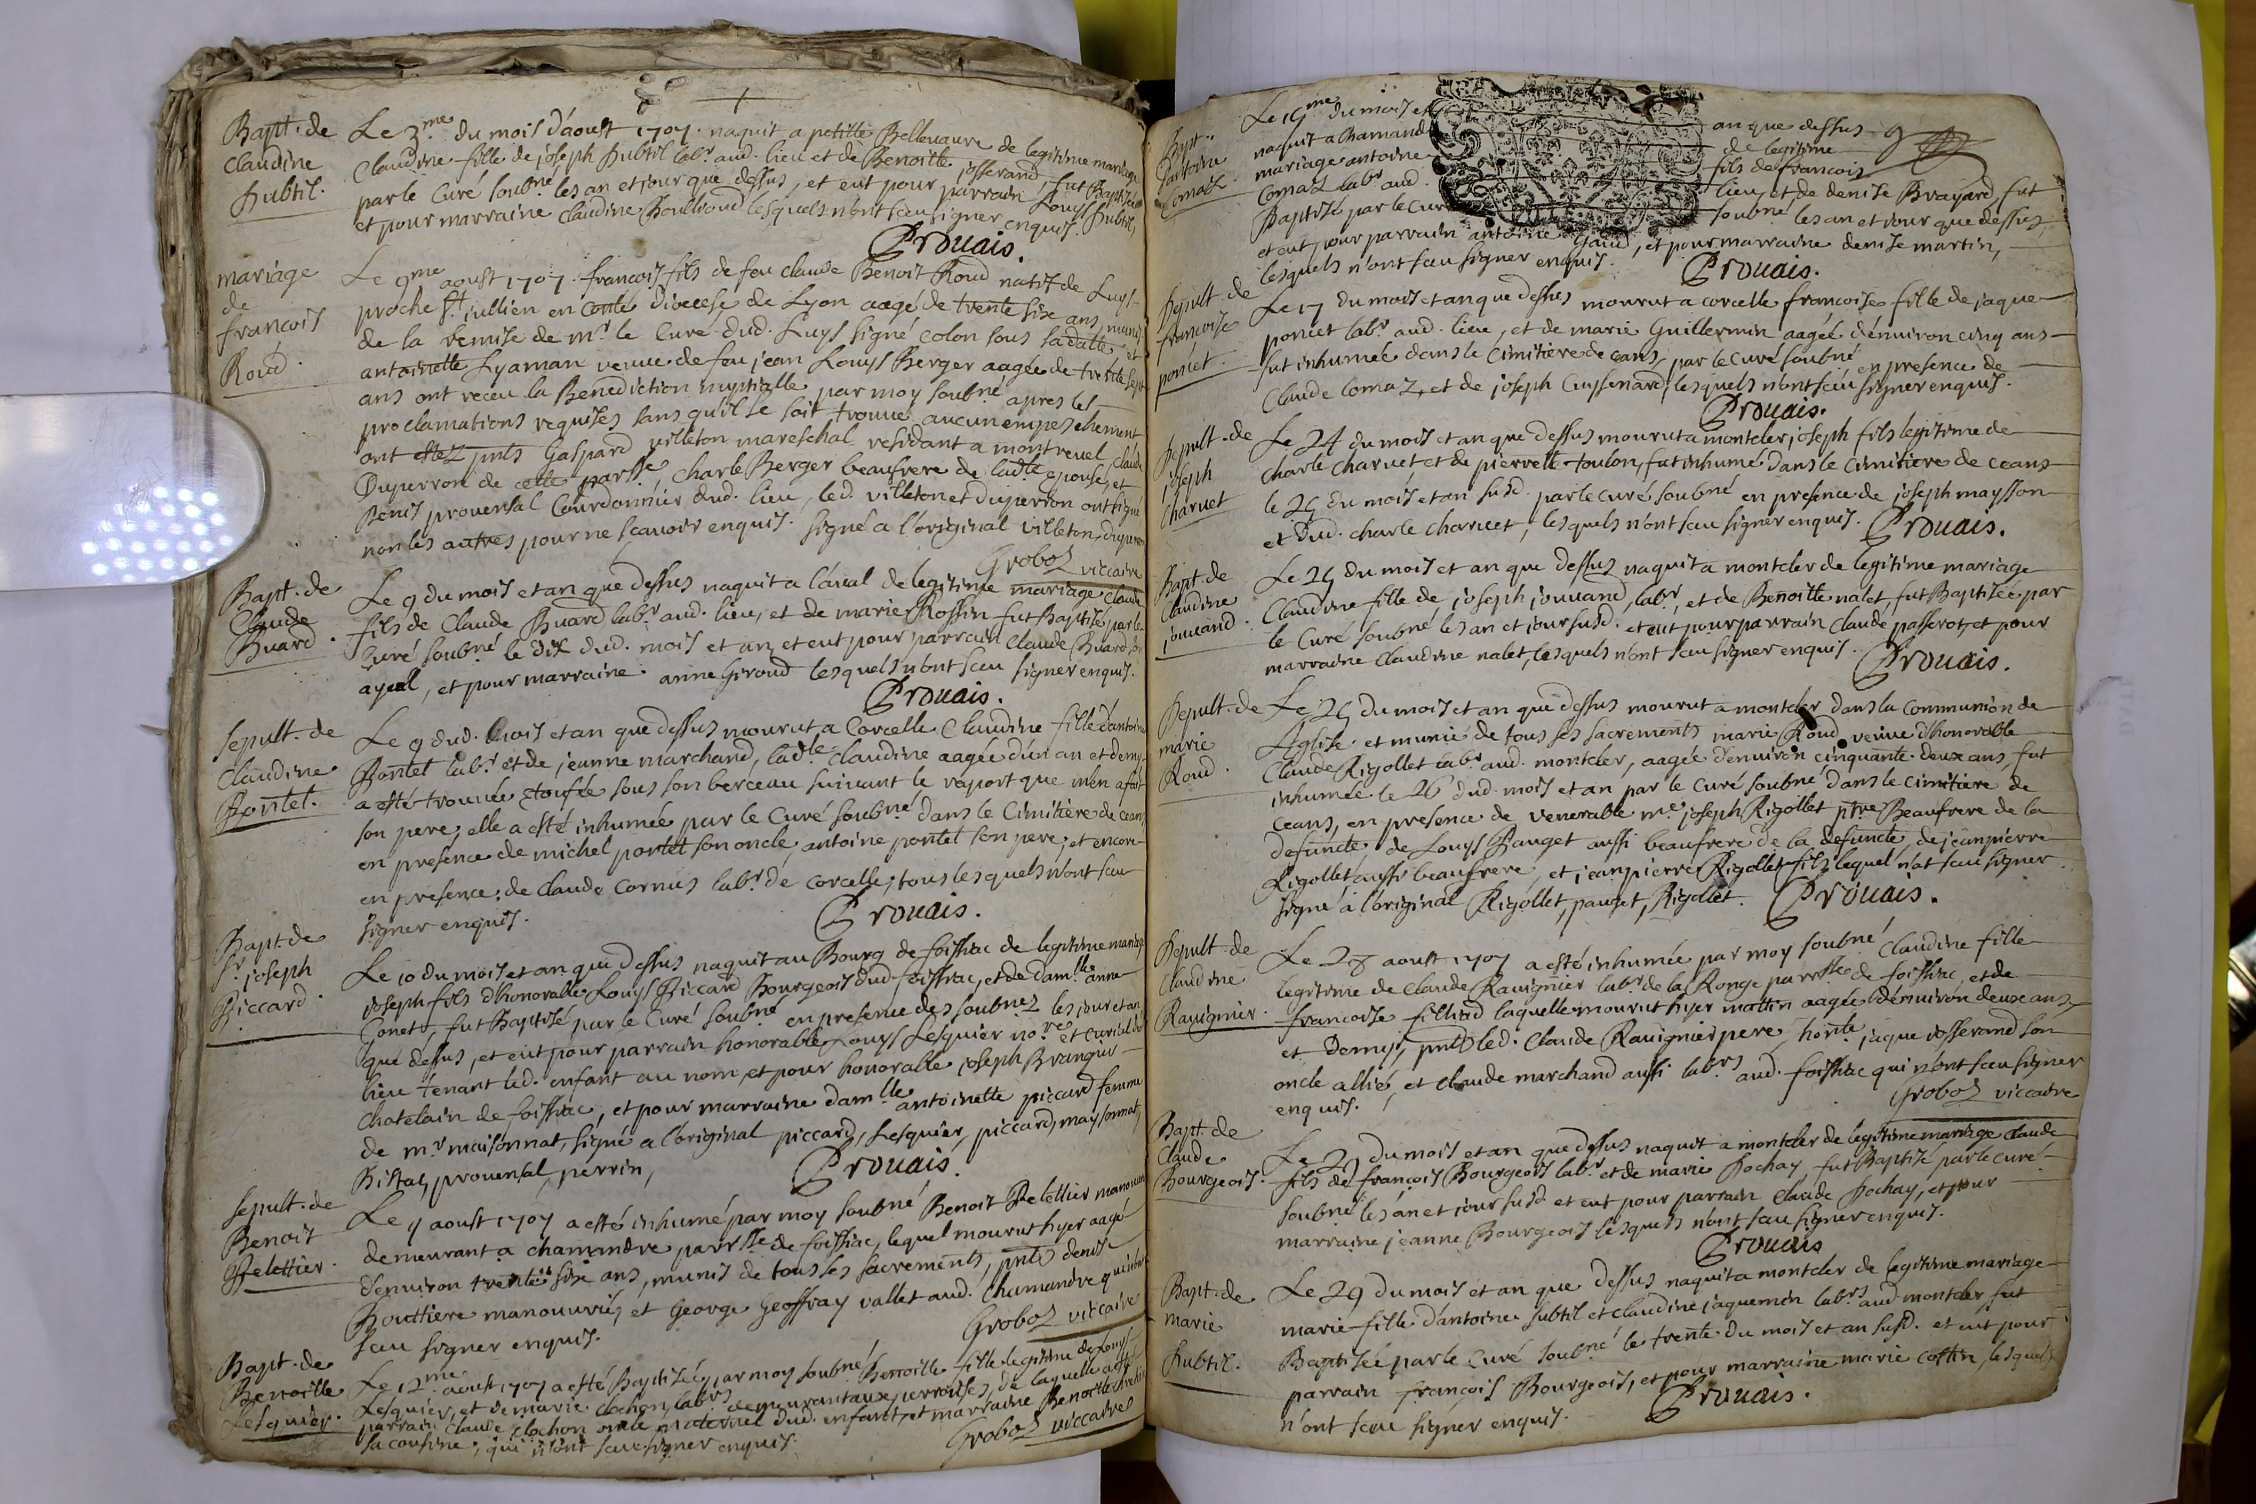 Bapt. de
Claudine
Subtil.
Le 3.me du mois d'aoust 1707. naquit a petitte Bellevavre de legitime mariage
Claudine fille de joseph Subtil labr. aud. lieu et de Benoitte josserand, fut Baptizée
par le Curé soubné les an et jour que dessus, et eut pour parrain Louys Subtil,
et pour marraine Claudine lesquels n'ont sçau signer enquis.
Prouais.
mariage
de
francois
Roud.
Le 9me aoust 1707. francois fils de feu claude Benoit Roud natif de Luys
proche St. jullien en Conté diocese de Lyon aagé de trente six ans, muni
de la remise de mr. le Cure dud. Luys signé colon sous sa datte, et
antoinette Lyaman veuve de feu jean Louys Berger aagée de trente sept
ans ont receu la Benediction nuptialle par moy soubné apres les
proclamations requises sans qu'il se soit trouvé aucun empeschement
ont estez pnts Gaspard villeton mareschal residant a montrevel, Claude
Duperron de cette parsse, Charle Berger beaufrere de ladte epouse, et
Denis provensal Courdonnier dud. lieu, led. villeton et duperron ont signé
non les autres pour ne scavoir enquis. signé a l'original villeton, duperron
Groboz viccaire
Bapt. de
Claude
Buard.
Le 9 du mois et an que dessus naquit a l'aval de legitime mariage Claude
fils de Claude Buard labr. aud. lieu, et de marie Rossin fut Baptisé par le
Curé soubné le dix dud. mois et an, et eut pour parrain Claude Buard son
ayeul, et pour marraine anne Giroud lesquels n'ont sçau signer enquis.
Prouais.
Sepult. de
Claudine
Pontet.
Le 9 dud. mois et an que dessus mourut a Corcelle Claudine fille d'antoine
Pontet labr. et de jeanne marchand, ladte. Claudine aagée d'un an et demy
a esté trouvée etoufée sous son berceau suivant le raport que m'en a fait
son pere, elle a esté inhumée par le Curé soubné dans le Cimitiere de ceans
en presence de michel pontet son oncle, antoine pontet son pere, et encore
en presence de Claude Cornus labr. de Corcelle, tous lesquels n'ont sçau
signer enquis.
Prouais.
Bapt. de
Sr. joseph
Piccard.
Le 10 du mois et an que dessus naquit au Bourg de foissiac de legitime mariage
joseph fils d'honorable Louys Piccard Bourgeois dud. foissiac, et de damlle anne
Conet, fut Baptisé par le Curé soubné en presence des soubnez les jour et an
que dessus, et eut pour parrain honorable Louys Lesquier nore. et curial du
lieu tenant led. enfant au nom et pour honorable joseph Brangier
Chatelain de foissiac, et pour marraine damlle antoinette piccard femme
de mr. maisonnat, signé a l'original piccard, Lesquier, piccard, maysonnat,
Bistac, provensal, perrin,
Prouais.
Sepult. de
Benoit
Pelettier.
Le 11 aoust 1707 a esté inhumé par moy soubné Benoit Pelettier manouvrié
demeurant a chamandre parrsse de foissiac, lequel mourut hyer aagé
d'environ trente six ans, munis de tous ses sacrements, pnts denis
Bouttiere manouvrié, et George Geoffray vallet aud. Chamandre qui n'ont
sçau signer enquis.
Groboz viccaire
Bapt. de
Benoitte
Lesquier.
Le 12me aoust 1707 a esté Baptisée par moy soubné Benoitte fille legitime de Louys
Lesquier, et de marie clochon labrs. demeurant aux perrouses, de laquelle a esté
parrain Claude clochon oncle maternel dud. enfant, et marraine Benoitte
sa cousine, qui n'ont sçau signer enquis.
Groboz viccaire
Bapt.
d'antoine
Comaz
Le 15me du mois et an que dessus
naquit a Chamandre de legitime
mariage antoine fils de francois
Comaz labr. aud. lieu, et de denise Brayard, fut
Baptisé par le Curé soubné les an et jour que dessus,
et eut pour parrain antoine Gaud, et pour marraine denise martin,
lesquels n'ont sçau signer enquis.
Prouais.
Sepult. de
francoise
poncet.
Le 17 du mois et an que dessus mourut a corcelle francoise fille de jaque
poncet labr. aud. lieu, et de marie Guillermin aagée d'environ cinq ans
fut inhumée dans le Cimitiere de ceans, par le Curé soubné en presence de
Claude Comaz, et de joseph Cuissenard, lesquels n'ont sçau signer enquis.
Prouais.
Sepult. de
joseph
Charvet
Le 24 du mois et an que dessus mourut a montcler joseph fils legitime de
Charle Charvet et de pierrette toulon, fut inhumé dans le Cimitiere de ceans
le 25 du mois et an susd. par le Curé soubné en presence de joseph maysson
et dud. charle Charvet, lesquels n'ont sçau signer enquis.
Prouais.
Bapt. de
Claudine
jouvand.
Le 25 du mois et an que dessus naquit a montcler de legitime mariage
Claudine fille de joseph jouvand, labr., et de Benoitte nalet, fut Baptisée par
le Curé soubné les an et jour susd. et eut pour parrain Claude passerot, et pour
marraine Claudine nalet, lesquels n'ont sçau signer enquis.
Prouais.
Sepult. de
marie
Roud.
Le 25 du mois et an que dessus mourut a montcler dans la Communion de
Eglise et munie de tous ses sacrements marie Roud veuve d'honorable
Claude Rigollet labr. aud. montcler, aagée d'environ cinquante deux ans, fut
inhumée le 26 dud. mois et an par le Curé soubné dans le Cimitiere de
ceans, en presence de venerable mre. joseph Rigollet ptre. Beaufrere de la
defuncte, de Louys Pauget aussi beaufrere de la defuncte, de jeanpierre
Rigollet aussi beaufrere, et jeanpierre Rigollet fils lequel n'at sçau signer
signé a l'original Rigollet, pauget, Rigollet.
Prouais.
Sepult. de
Claudine
Ravignier.
Le 28 aoust 1707 a esté inhumée par moy soubné Claudine fille
legitime de Claude Ravignier labr. de la Ronge parrsse de foissiac, et de
francoise filliod laquelle mourut hyer mattin aagée d'environ deux ans
et demy, pnts led. Claude Ravignier pere, honle jaque josserand son
oncle allié, et Claude marchand aussi labrs aud. foissiac qui n'ont sçau signer
enquis.
Groboz viccaire
Bapt. de
Claude
Bourgeois.
Le 29 du mois et an que dessus naquit a montcler de legitime mariage Claude
fils de francois Bourgeois labr. et de marie Sochay, fut Baptisé par le Curé
soubné les an et jour susd. et eut pour parrain Claude Sochay, et pour
marraine jeanne Bourgeois lesquels n'ont sçau signer enquis.
Prouais
Bapt. de
marie
Subtil.
Le 29 du mois et an que dessus naquit a montcler de legitime mariage
marie fille d'antoine Subtil et Claudine jaquemin labrs. aud. montcler, fut
Baptisée par le Curé soubné le trente du mois et an susd. et eut pour
parrain francois Bourgeois, et pour marraine marie cottin, lesquels
n'ont sçau signer enquis.
Prouais.